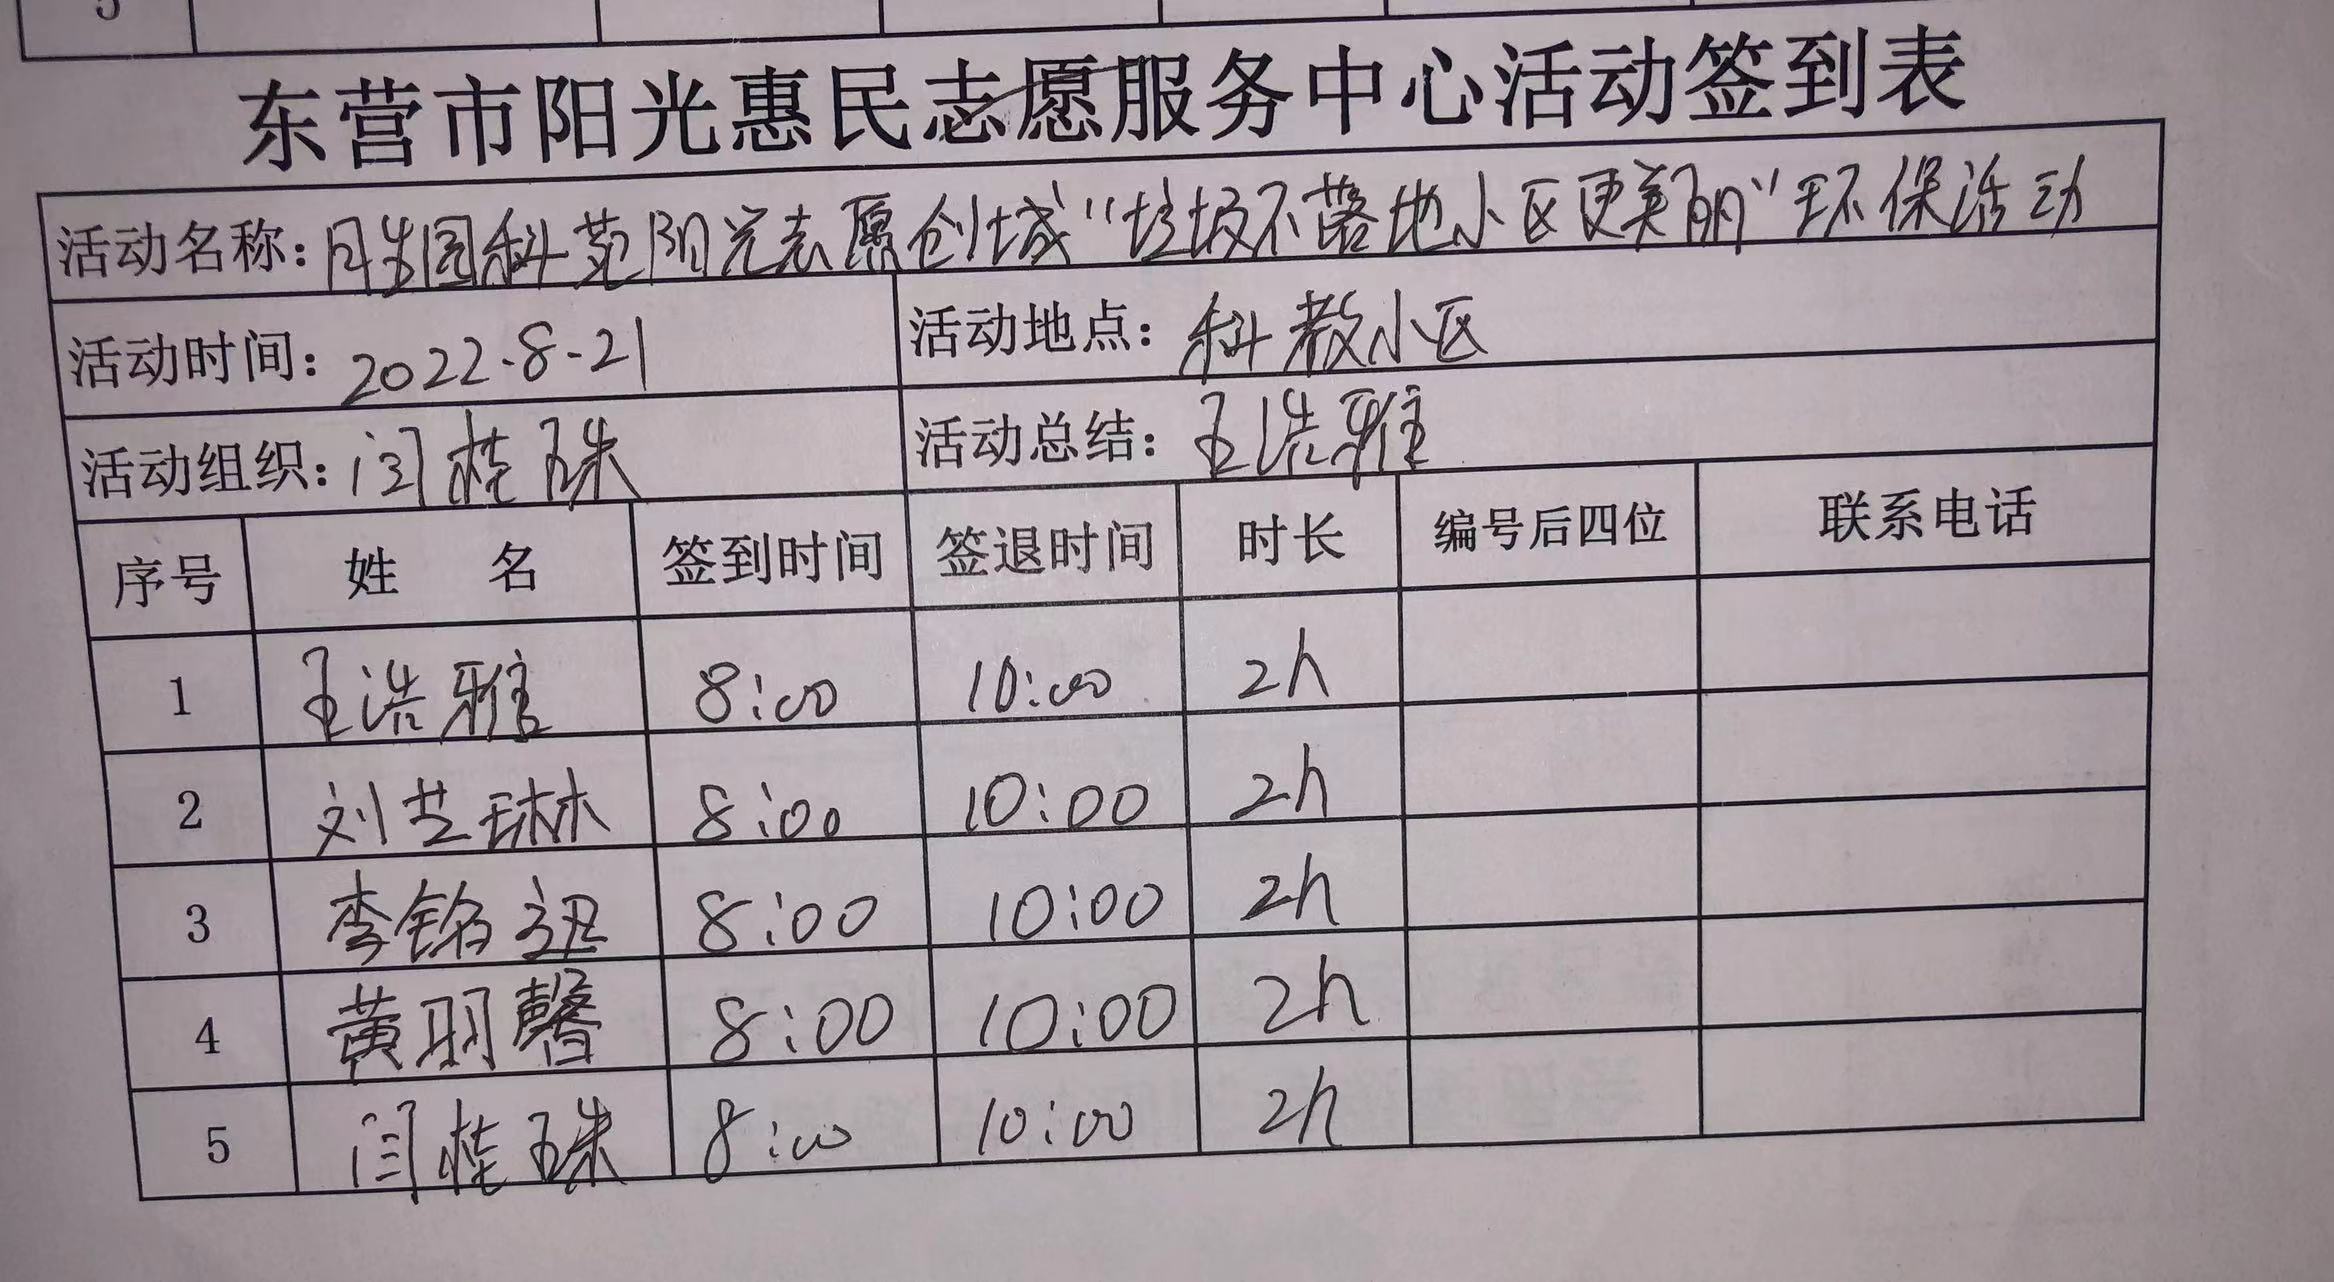 5
东营市阳光惠民志愿服务中心活动签到表
活动名称：胜园科苑阳光志愿创城“垃圾不落地小区更美丽”环保活动
活动时间：2022.8.21 活动地点：科教小区
活动组织：闫桂珠 活动总结：王浩雅
序号 姓名 签到时间 签退时间 时长 编号后四位 联系电话
1 王浩雅 8:00 10:00 2h
2 刘芝琳 8:00 10:00 2h
3 李铭 8:00 10:00 2h
4 黄羽馨 8:00 10:00 2h
5 闫桂珠 8:00 10:00 2h